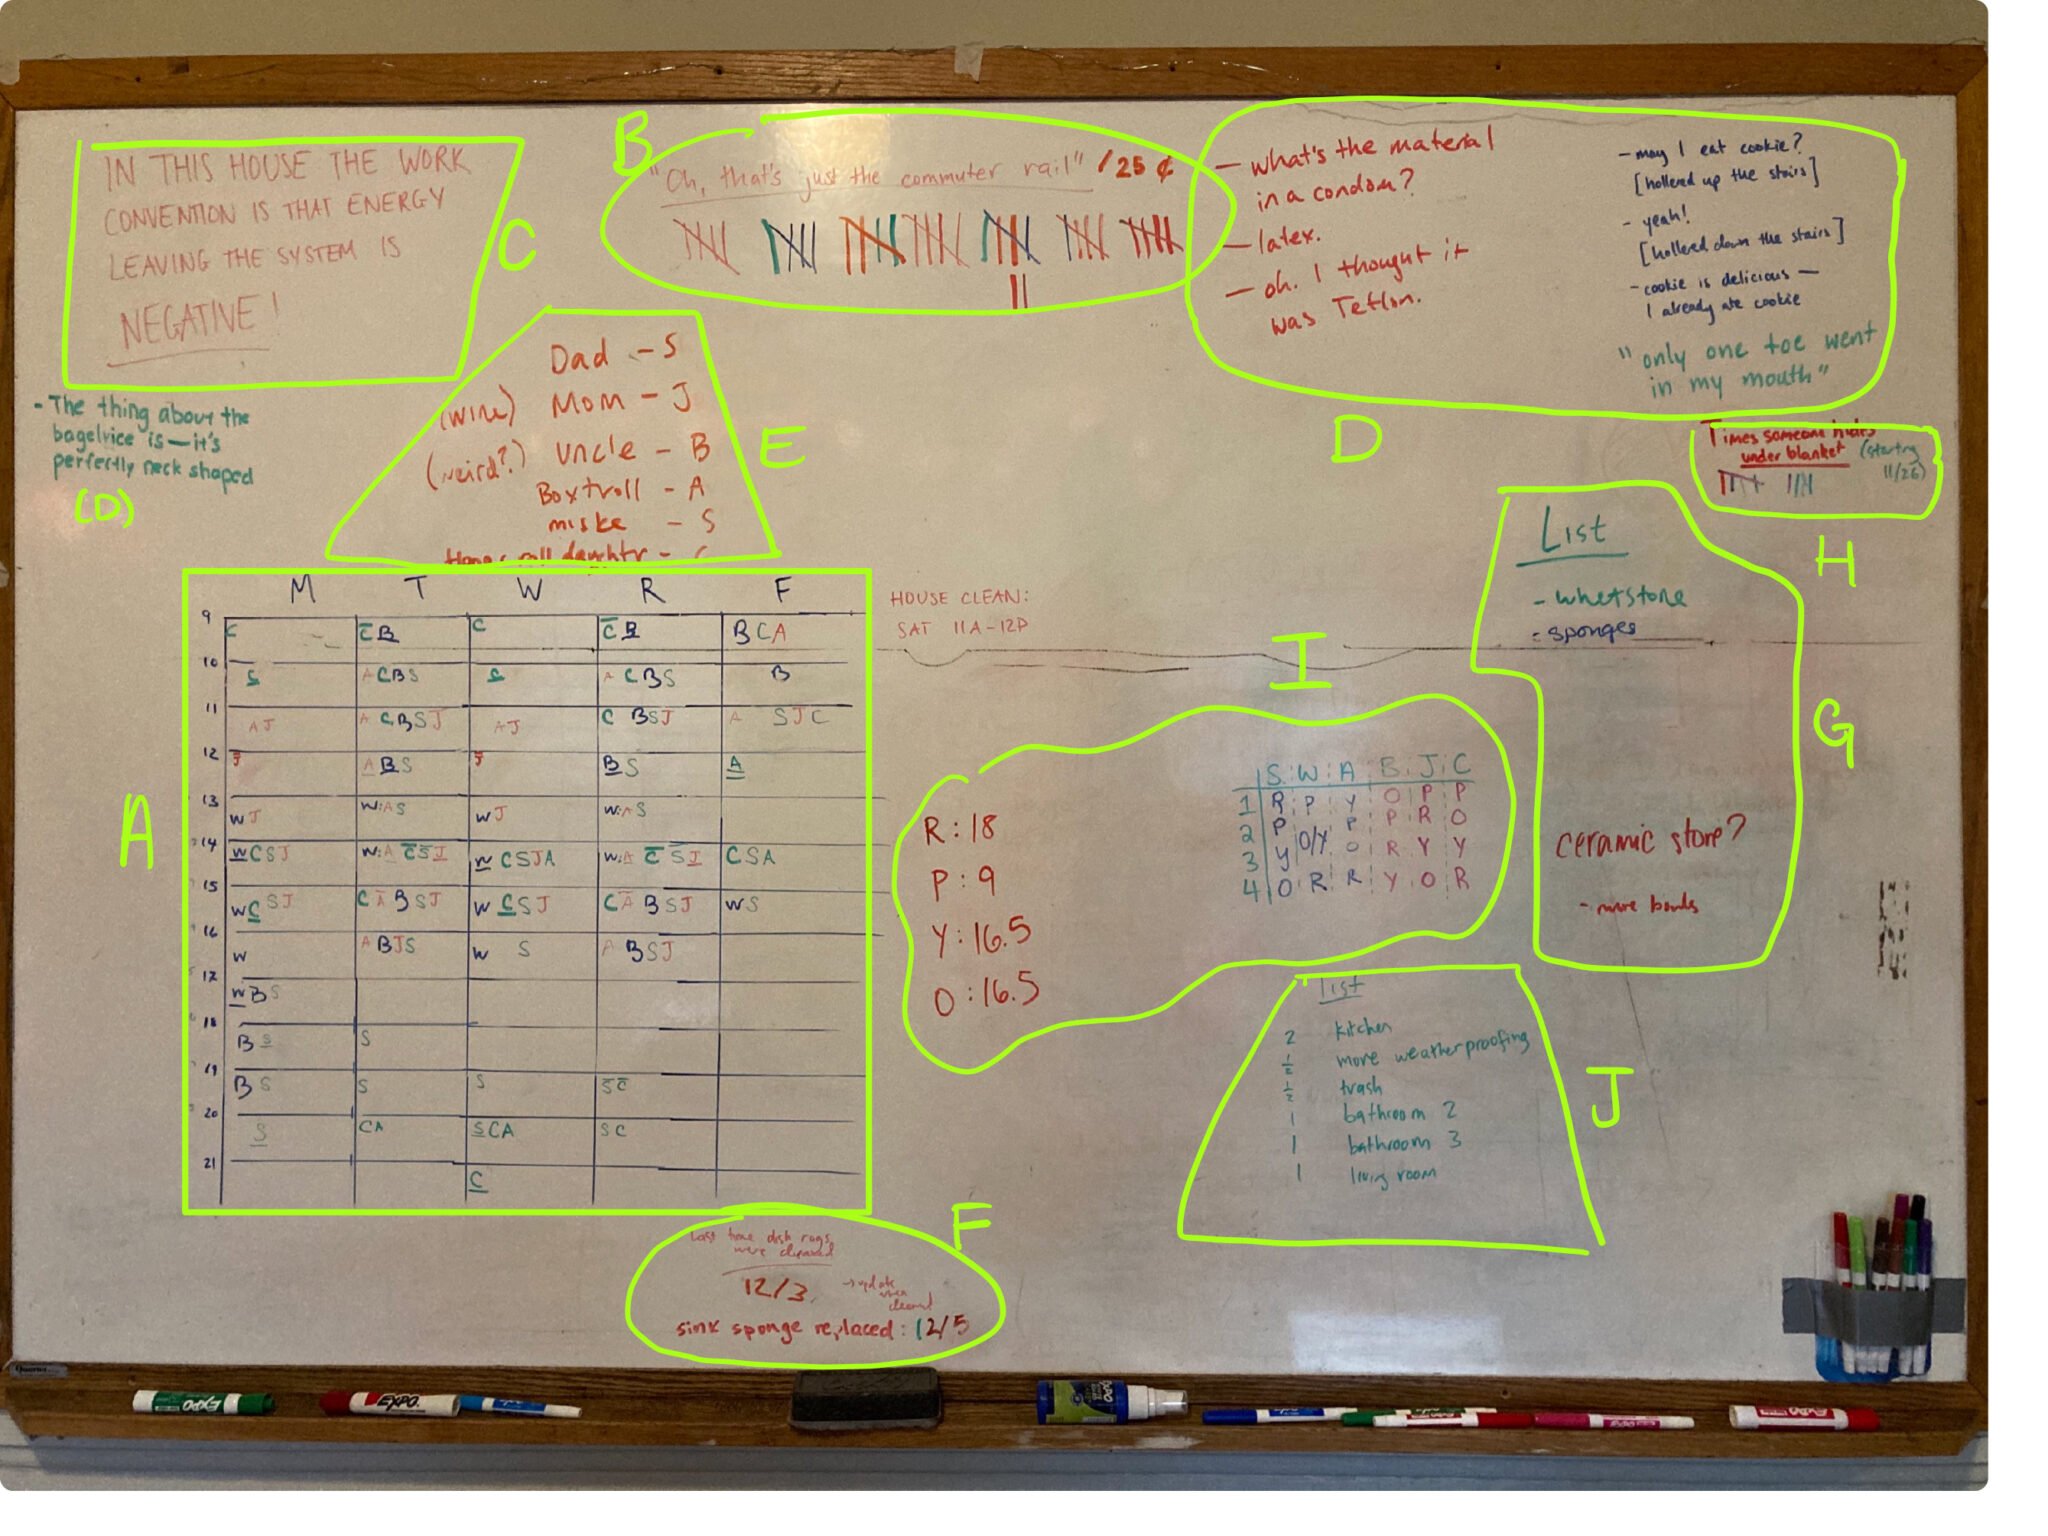 IN THIS HOUSE THE WORK
CONVENTION IS THAT ENERGY
LEAVING THE SYSTEM IS
NEGATIVE!
C
B
"Oh, that's just the commuter rail" /25 ¢
- what's the material
in a condom?
- latex.
- oh. I thought it
was Teflon.
- may I eat cookie?
[hollered up the stairs]
- yeah!
[hollered down the stairs]
- cookie is delicious —
I already ate cookie
"only one toe went
in my mouth"
D
- The thing about the
bagelvice is — it's
perfectly neck shaped
(D)
Dad - S
(wine) Mom - J
(weird?) Uncle - B
Boxtroll - A
miske - S
roll daughtr -
E
Times someone hides
under blanket (starting
11/26)
H
List
- whetstone
- sponges
ceramic store?
- more bowls
G
HOUSE CLEAN:
SAT 11A-12P
A
M T W R F
9 C C̅B C C̅B BCA
10 C ACBS C ACBS B
11 AJ ACBSJ AJ CBSJ A SJC
12 J ABS J BS A
13 WJ W:AS WJ W:AS
14 WCSJ W:A C̅S̅J WCSJA W:A C̅ S̅J CSA
15 WCSJ CA̅BSJ WCSJ CA̅BSJ WS
16 W ABJS W S ABSJ
17 WBS
18 BS S
19 BS S S S̅C̅
20 S CA SCA SC
21 C
I
R: 18
P: 9
Y: 16.5
O: 16.5
S W A B J C
1 R P Y O P P
2 P O/Y P P R O
3 Y O R Y Y
4 O R R Y O R
List
2 kitchen
½ more weatherproofing
½ trash
1 bathroom 2
1 bathroom 3
1 living room
J
F
Last time dish rags
were cleaned
12/3 → update
when
cleaned
sink sponge replaced: 12/5
EXPO
EXPO
EXPO